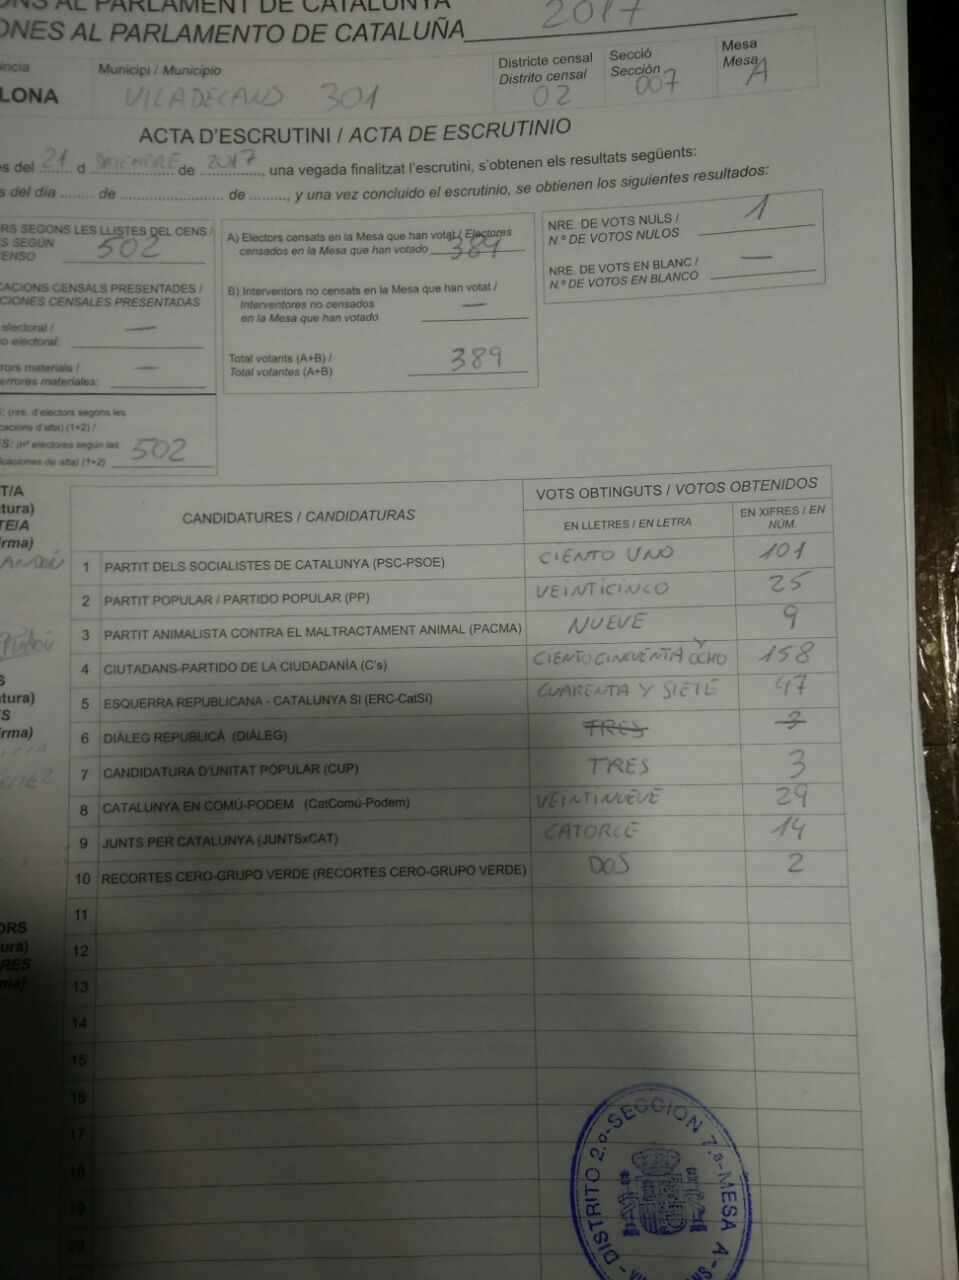 ONS AL PARLAMENT DE CATALUNYA
ONES AL PARLAMENTO DE CATALUÑA 2017
íncia
LONA
Municipi / Municipio
VILADECANS 301
Districte censal
Distrito censal
02
Secció
Sección
007
Mesa
Mesa
A
ACTA D'ESCRUTINI / ACTA DE ESCRUTINIO
es del 21 d DICIEMBRE de 2017, una vegada finalitzat l'escrutini, s'obtenen els resultats següents:
s del día ........ de ........................... de ........., y una vez concluido el escrutinio, se obtienen los siguientes resultados:
RS SEGONS LES LLISTES DEL CENS /
S SEGÚN
ENSO 502
CACIONS CENSALS PRESENTADES /
CIONES CENSALES PRESENTADAS
electoral / —
o electoral:
rors materials / —
errores materiales:
: (nre. d'electors segons les
cacions d'alta) (1+2) /
ES: (nº electores según las
icaciones de alta) (1+2) 502
A) Electors censats en la Mesa que han votat / Electores
censados en la Mesa que han votado 389
B) Interventors no censats en la Mesa que han votat /
Interventores no censados
en la Mesa que han votado —
Total votants (A+B) /
Total votantes (A+B) 389
NRE. DE VOTS NULS /
N.º DE VOTOS NULOS 1
NRE. DE VOTS EN BLANC /
N.º DE VOTOS EN BLANCO —
T/A
tura)
TE/A
irma)
S
tura)
S
irma)
ORS
ura)
RES
ma)
CANDIDATURES / CANDIDATURAS
VOTS OBTINGUTS / VOTOS OBTENIDOS
EN LLETRES / EN LETRA
EN XIFRES / EN
NÚM.
1 PARTIT DELS SOCIALISTES DE CATALUNYA (PSC-PSOE) CIENTO UNO 101
2 PARTIT POPULAR / PARTIDO POPULAR (PP) VEINTICINCO 25
3 PARTIT ANIMALISTA CONTRA EL MALTRACTAMENT ANIMAL (PACMA) NUEVE 9
4 CIUTADANS-PARTIDO DE LA CIUDADANÍA (C's) CIENTO CINCUENTA Y OCHO 158
5 ESQUERRA REPUBLICANA - CATALUNYA SI (ERC-CatSí) CUARENTA Y SIETE 47
6 DIÀLEG REPUBLICÀ (DIÀLEG) TRES 3
7 CANDIDATURA D'UNITAT POPULAR (CUP) TRES 3
8 CATALUNYA EN COMÚ-PODEM (CatComú-Podem) VEINTINUEVE 29
9 JUNTS PER CATALUNYA (JUNTSxCAT) CATORCE 14
10 RECORTES CERO-GRUPO VERDE (RECORTES CERO-GRUPO VERDE) DOS 2
11
12
13
14
15
16
17
18
19
20
DISTRITO 2.º-SECCION 7.ª-MESA A -